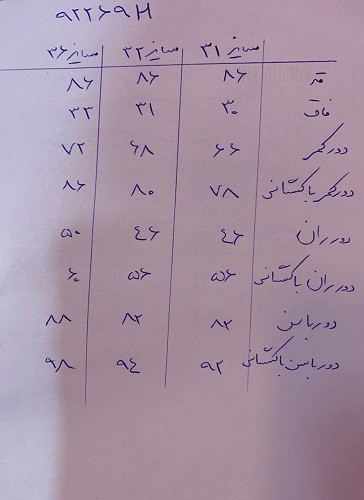 ۹۲۲۶۹M
سایز ۳۱ سایز ۳۲ سایز ۳۶
قد ۸۶ ۸۶ ۸۶
فاق ۳۰ ۳۱ ۳۳
دورکمر ۶۶ ۶۸ ۷۲
دورکمر با کشسانی ۷۸ ۸۰ ۸۶
دور ران ۴۶ ۴۶ ۵۰
دور ران با کشسانی ۵۶ ۵۶ ۶۰
دور باسن ۸۲ ۸۲ ۸۸
دور باسن با کشسانی ۹۲ ۹۴ ۹۸